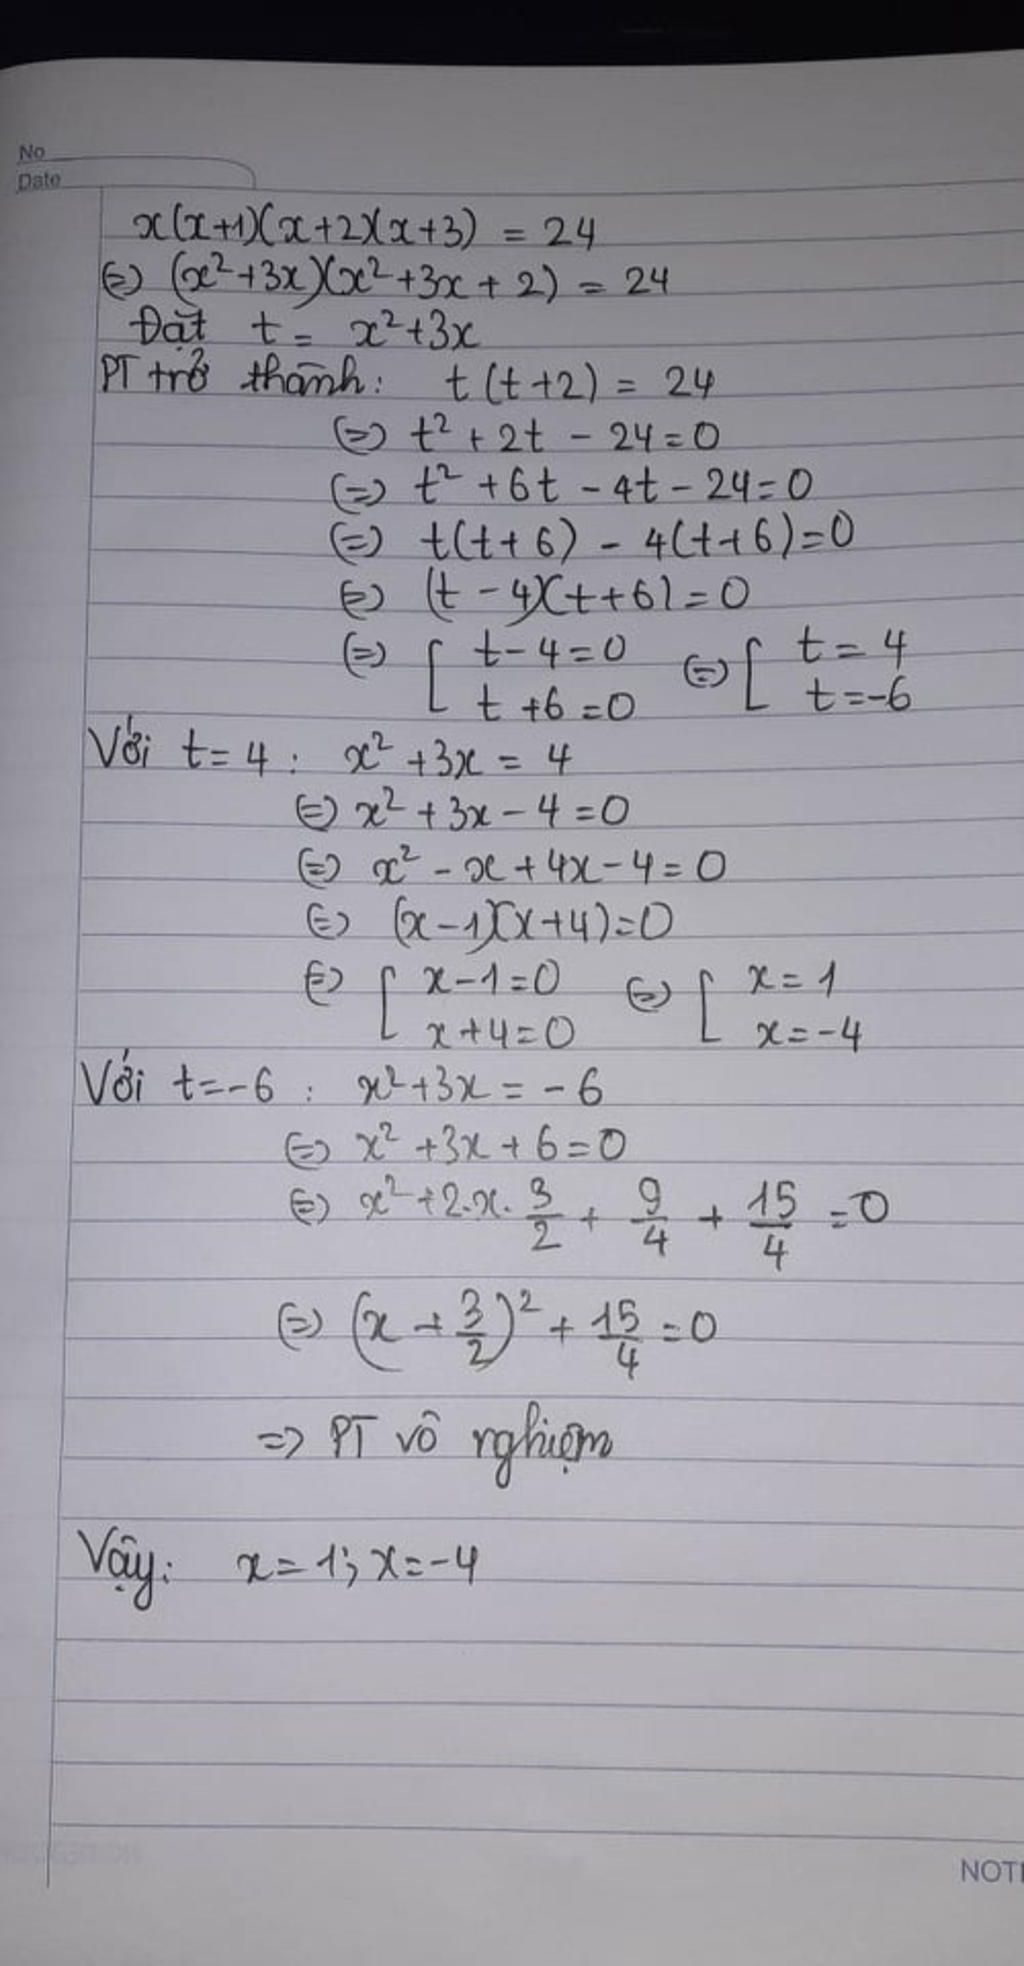 No
Date
x(x+1)(x+2)(x+3) = 24
(=) (x²+3x)(x²+3x+2) = 24
Đặt t = x²+3x
PT trở thành: t(t+2) = 24
(=) t² + 2t - 24 = 0
(=) t² + 6t - 4t - 24 = 0
(=) t(t+6) - 4(t+6) = 0
(=) (t-4)(t+6) = 0
(=) [ t-4=0 (=) [ t = 4
t+6=0 t=-6
Với t=4 : x² + 3x = 4
(=) x² + 3x - 4 = 0
(=) x² - x + 4x - 4 = 0
(=) (x-1)(x+4)=0
(=) [ x-1=0 (=) [ x=1
x+4=0 x=-4
Với t=-6 : x²+3x = -6
(=) x² + 3x + 6 = 0
(=) x² + 2.x. 3/2 + 9/4 + 15/4 = 0
(=) (x + 3/2)² + 15/4 = 0
=> PT vô nghiệm
Vậy: x=1; x=-4